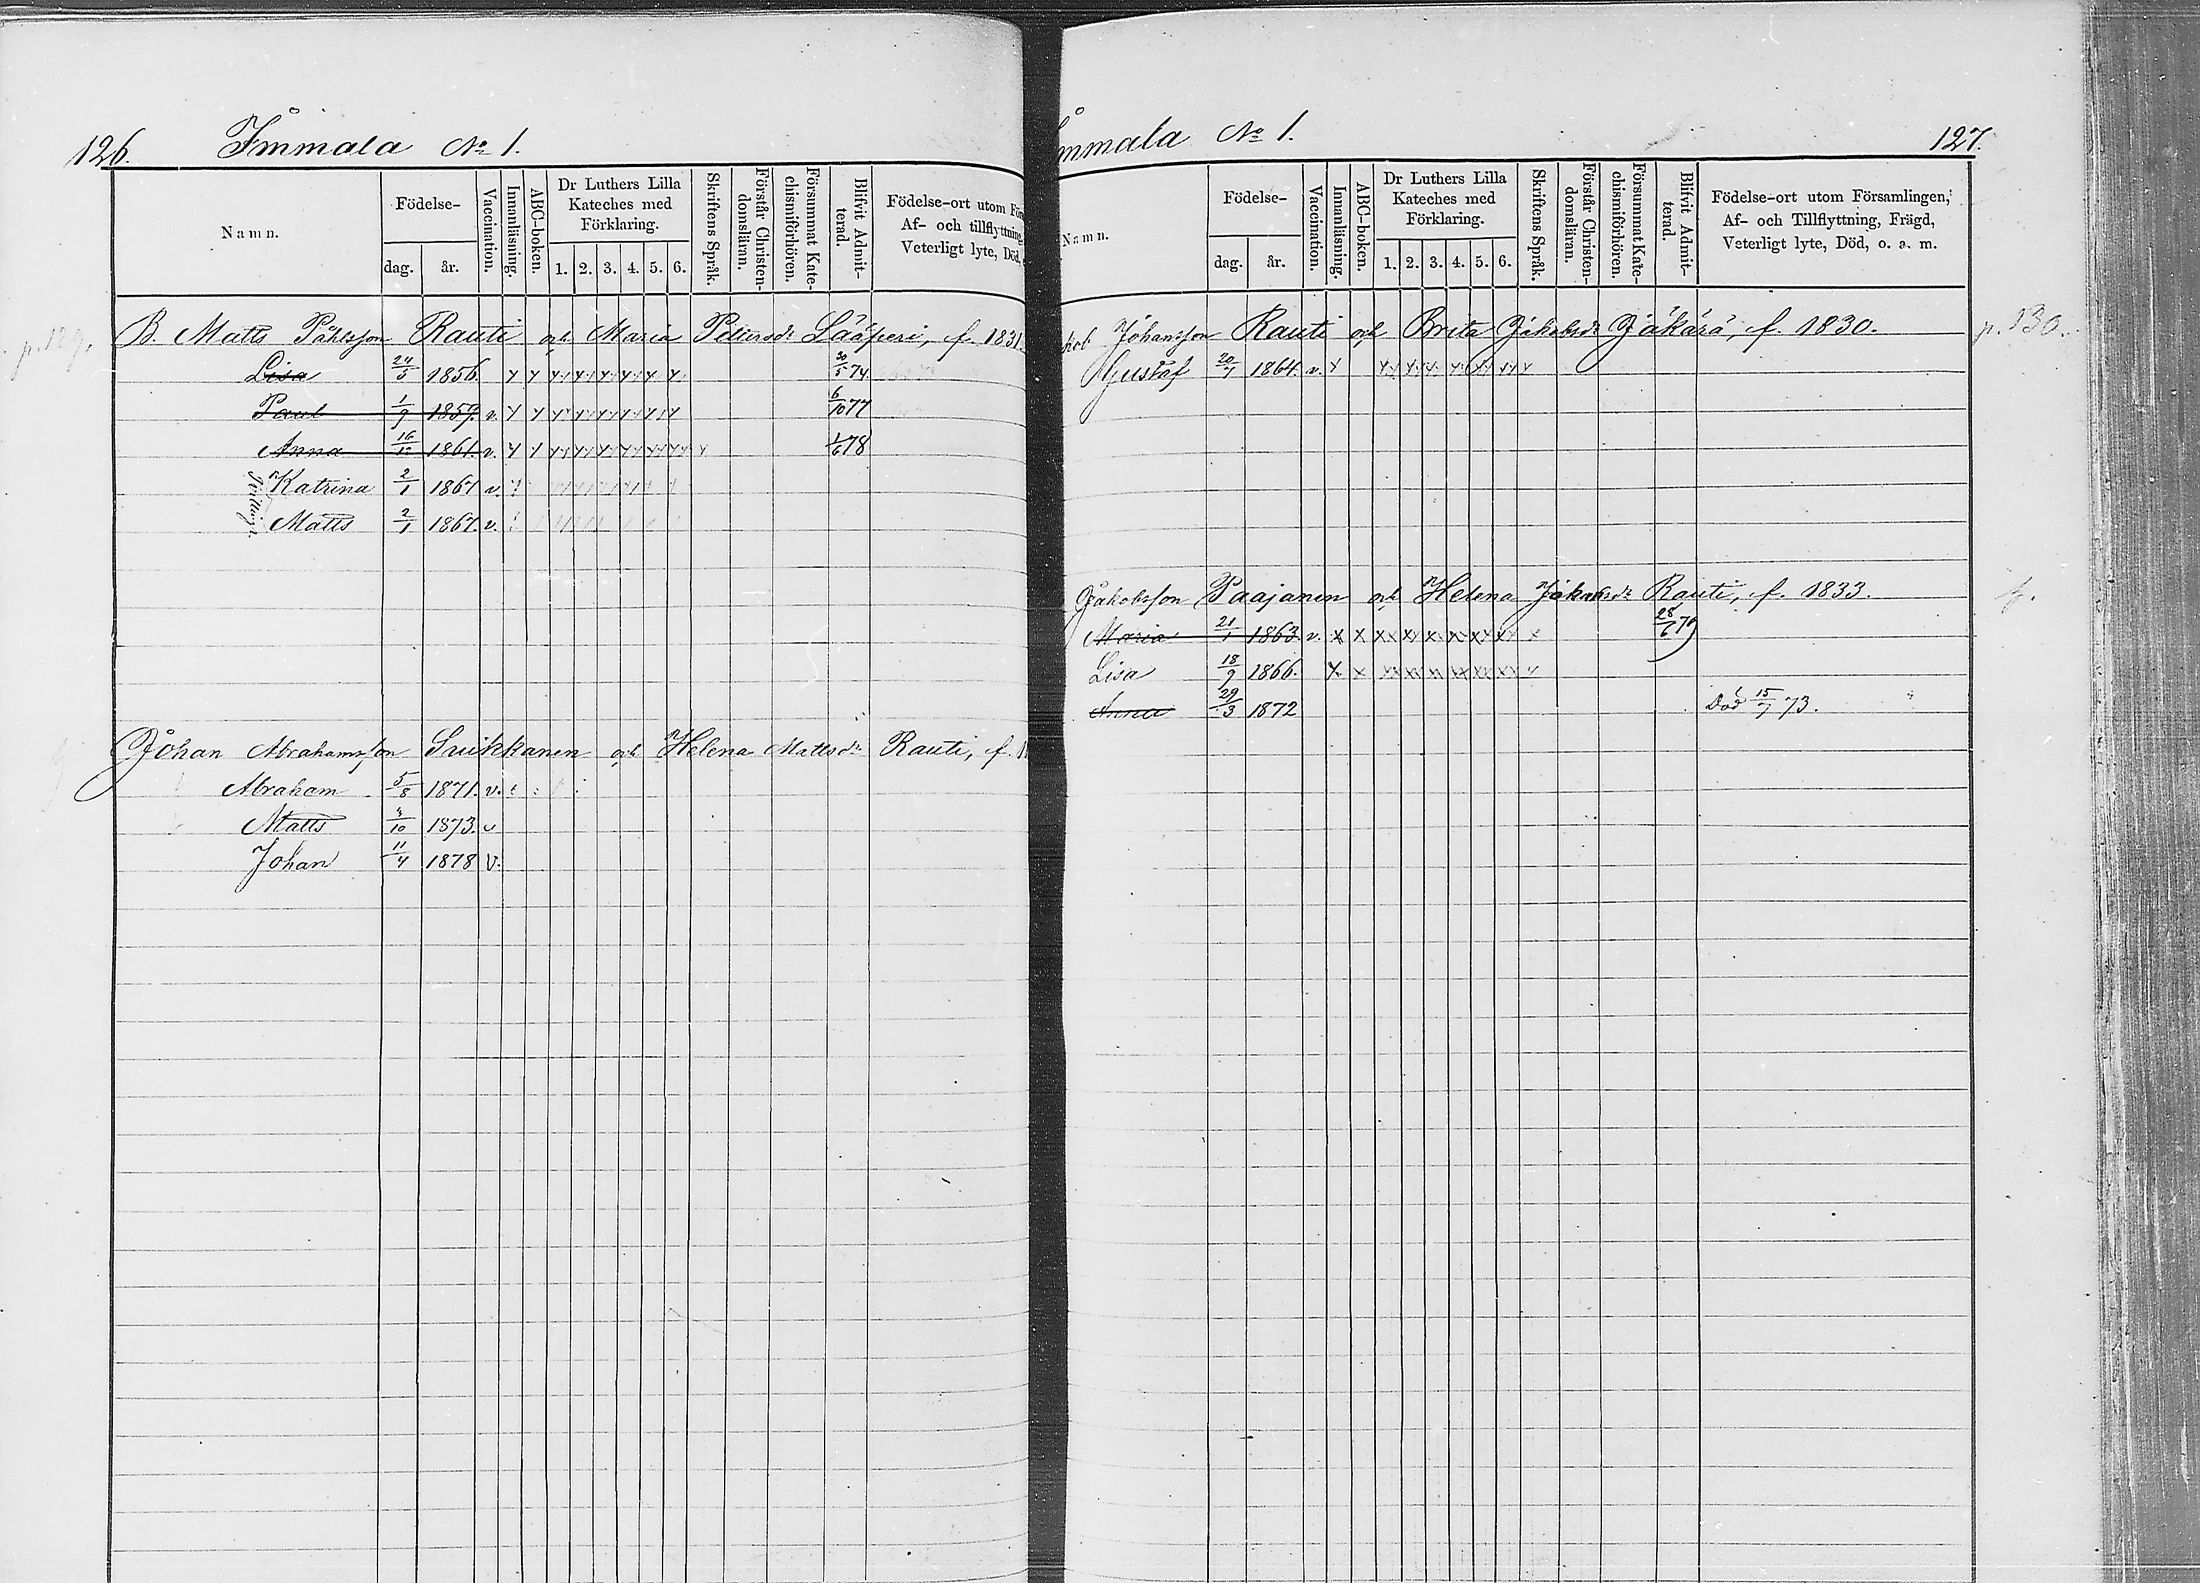 126. Immala No 1.
Namn.
Födelse-
dag.
år.
Vaccination.
Innanläsning.
ABC-boken.
Dr Luthers Lilla
Kateches med
Förklaring.
1. 2. 3. 4. 5. 6.
Skriftens Språk.
Förstår Christen-
domsläran.
Försummat Kate-
chismiförhören.
Blifvit Admit-
terad.
Födelse-ort utom För
Af- och tillflyttning
Veterligt lyte, Död,
p. 129.
B. Matts Påhlsson Rauti och Maria Petersdr Lääperi, f. 1831
Lisa 24/5 1856. 30/5 74
Paul 1/9 1859. v. 6/10 77
Anna 16/12 1861. v. 1/6 78
Tvillingar
Katrina 2/1 1867 v.
Matts 2/1 1867. v.
Johan Abrahamsson Suikkanen och Helena Mattsdr Rauti, f. 1
Abraham 5/8 1871. v.
Matts /10 1873. v
Johan 11/4 1878 v.
mmala No 1. 127.
Namn.
Födelse-
dag.
år.
Vaccination.
Innanläsning.
ABC-boken.
Dr Luthers Lilla
Kateches med
Förklaring.
1. 2. 3. 4. 5. 6.
Skriftens Språk.
Förstår Christen-
domsläran.
Försummat Kate-
chismiförhören.
Blifvit Admit-
terad.
Födelse-ort utom Församlingen,
Af- och Tillflyttning, Frägd,
Veterligt lyte, Död, o. a. m.
kob Johansson Rauti och Brita Jakobsdr Jäkärä, f. 1830. p. 130.
Gustaf 20/7 1864. v.
Jakobsson Paajanen och Helena Jakobsdr Rauti, f. 1833. f.
Maria 21/1 1863. v. 28/6 79
Lisa 18/9 1866.
Anna 29/3 1872 Död 15/7 73.